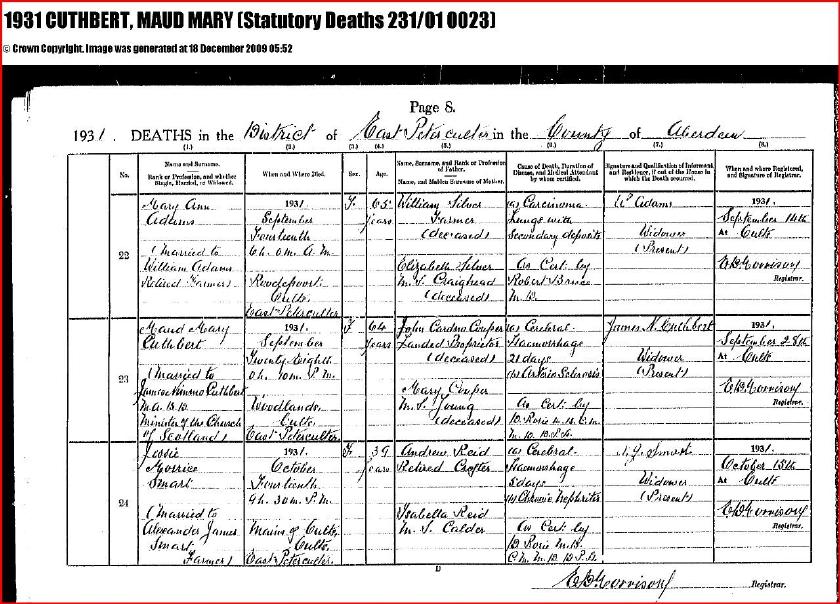 1931 CUTHBERT, MAUD MARY (Statutory Deaths 231/01 0023)
© Crown Copyright. Image was generated at 18 December 2009 05:52
Page 8.
1931. DEATHS in the District of East Peterculter in the County of Aberdeen
(1.) (2.) (3.) (4.) (5.) (6.) (7.) (8.)
No.
Name and Surname.
Rank or Profession, and whether
Single, Married, or Widowed.
When and Where Died.
Sex.
Age.
Name, Surname, and Rank or Profession
of Father.
Name, and Maiden Surname of Mother.
Cause of Death, Duration of
Disease, and Medical Attendant
by whom certified.
Signature and Qualification of Informant,
and Residence, if out of the House in
which the Death occurred.
When and where Registered,
and Signature of Registrar.
22
Mary Ann
Adams
(Married to
William Adams
Retired Farmer)
1931.
September
Fourteenth
6h. 0m. A.M.
Cults,
East Peterculter
F.
65
years
William Silver
Farmer
(deceased)
Elizabeth Silver
M.S. Craighead
(deceased)
(a) Carcinoma
Lungs with
Secondary deposits
As Cert. by
Robert Bruce
M.B.
Wm Adams
Widower
(Present)
1931.
September 14th
At Cults
Registrar.
23
Maud Mary
Cuthbert
(Married to
James Nimmo Cuthbert
M.A. B.D.
Minister of the Church
of Scotland)
1931.
September
Twenty Eighth
Woodlands
Cults,
East Peterculter
F.
64
years
John Cardno Couper
Landed Proprietor
(deceased)
Mary Couper
M.S. Young
(deceased)
(a) Cerebral
Haemorrhage
21 days
(b) Arterio Sclerosis
As Cert. by
D. Rorie
James N. Cuthbert
Widower
(Present)
1931.
September 28th
At Cults
Registrar.
24
Jessie
Morrice
Smart
(Married to
Alexander James
Smart
Farmer)
1931.
October
Fourteenth
9h. 30m. P.M.
Mains of Cults,
Cults,
East Peterculter.
F.
39
years
Andrew Reid
Retired Crofter
Isabella Reid
M.S. Calder
(a) Cerebral
Haemorrhage
5 days
(b) Chronic Nephritis
As Cert. by
D. Rorie M.B.
A. J. Smart
Widower
(Present)
1931.
October 15th
At Cults
Registrar.
D
Registrar.